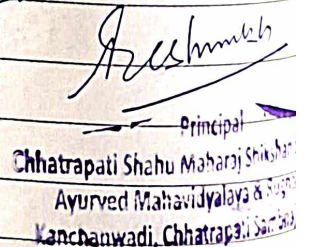 Principal
Chhatrapati Shahu Maharaj Shikshan
Ayurved Mahavidyalaya &
Kanchanwadi, Chhatrapati